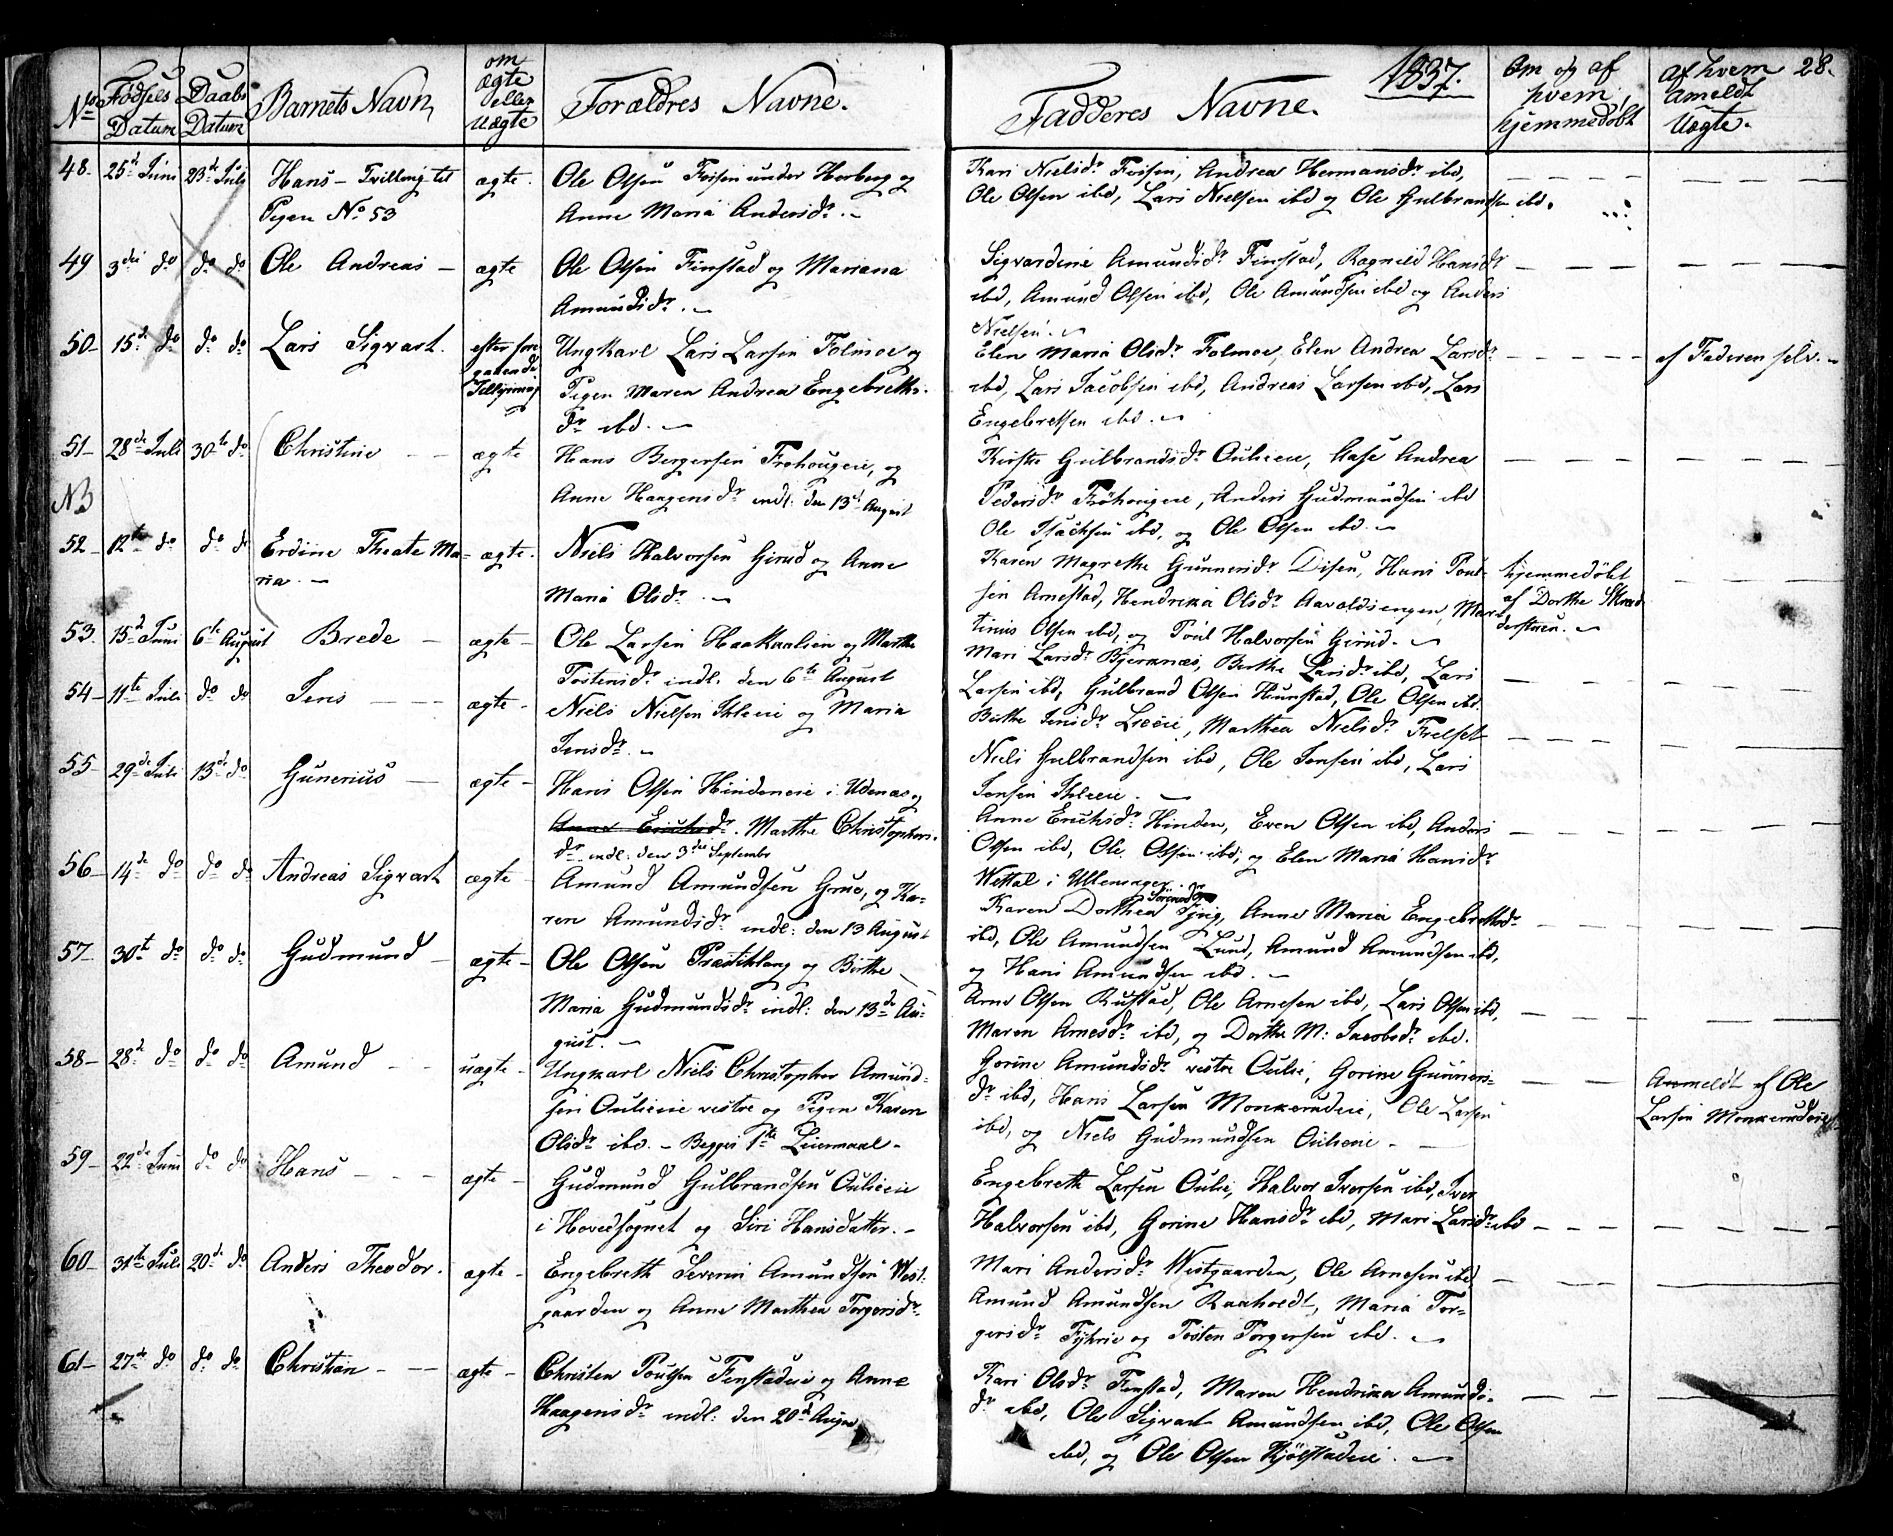 1837.
28.
No
Fødsels Datum
Daabs Datum
Barnets Navn
om ægte eller uægte
Forældres Navne.
Fadderes Navne.
Om og af hvem hjemmedøbt
af hvem Anmeldt Uægte.
48- 25d Juni 23d July Hans - Tvilling til ægte. Ole Olsen under Herberg og
Pigen No 53 Anne Maria Andersdr. -
Kari Nielsdr, Andrea Hermansdr ibd,
Ole Olsen ibd, Lars Nielsen ibd og Ole Gulbrandsen ibd.
49 3die do do do Ole Andreas - ægte Ole Olsen Finstad og Mariana
Amundsdr. -
Sigvardine Amundsdr Finstad, Ragnild Hansdr
ibd, Amund Olsen ibd, Ole Amundsen ibd og Anders
Nielsen. -
50- 15d do do do Lars Sigvart. efter foregaaende Ungkarl Lars Larsen Tolmoe og
Pigen Maren Andrea Engebreths-
dr ibd. -
Elen Maria Olsdr Tolmoe, Elen Andrea Larsdr
ibd, Lars Jacobsen ibd, Andreas Larsen ibd, Lars
Engebretsen ibd. -
af Faderen selv. -
51- 28de Juli 30te do Christine ægte Hans Bergersen Frohougeie, og
NB
Anne Haagensdr indl: den 13de August
Kirstie Gulbrandsdr Oulieeie, Aase Andrea
Pedersdr Frøhougeie, Anders Gudmundsen ibd
Ole Isachsen ibd, og Ole Olsen ibd. -
52- 12te do do do Erdine Theate Ma- ægte. Niels Halvorsen Girud og Anne
ria. -
Maria Olsdr. -
Karen Magrethe Gunnersdr Disen, Hans Poul-
sen Arnestad, Hendrika Olsdr Aavoldsengen, Mar-
tinus Olsen ibd, og Poul Halvorsen Girud. -
hjemmedøbt
af Dorthe
53. 15d Juni 6te August Brede - ægte - Ole Larsen Haakaalien og Marthe
Tostensdr indl. den 6te August
Mari Larsdr Bjerknæs, Berthe Larsdr ibd, Lars
Larsen ibd, Gulbrand Olsen Hunstad, Ole Olsen ibd.
54- 11te Juli do do Jens ægte - Niels Nielsen Ihleeie og Maria
Jensdr. -
Berthe Jensdr, Marthea Nielsdr
Niels Gulbrandsen ibd, Ole Jensen ibd, Lars
Jensen Ihleeie. -
55- 29de Juli 13de do Gunerius - ægte - Hans Olsen Hindeneie i Udenæs og
Anne Erichsdr. Marthe Christophers-
dr indl: den 3die Septembr
Anne Erichsdr Hinden, Even Olsen ibd, Anders
Olsen ibd, Ole Olsen ibd, og Elen Maria Hansdr
Wettal i Ullensager.
56- 14de do do do Andreas Sigvart ægte - Amund Amundsen Grue, og Ka-
ren Amundsdr indl: den 13 August
Karen Dorthea, Anne Maria Engebrethsdr
ibd, Ole Amundsen Lund, Amund Amundsen ibd,
og Hans Amundsen ibd. -
57- 30t do do do Gudmund - ægte - Ole Olsen Præstiklang og Birthe
Maria Gudmundsdr indl: den 13de Au-
gust. -
Arne Olsen Rustad, Ole Arnesen ibd, Lars Olsen ibd,
Maren Arnesdr ibd, og Dorthe M: Jacobsdr ibd.
58- 28d do do do Amund uægte - Ungkarl Niels Christopher Amund-
sen Oulieeie vestre og Pigen Karen
Olsdr ibd. - Begges 1te Leiermaal -
Gorine Amundsdr vestre Oulie, Gorine Gunners-
dr ibd, Hans Larsen Monkerudeie, Ole Larsen
ibd, og Niels Gudmundsen Oulieeie -
Anmeldt af Ole
Larsen Monkerudeie
59- 22de Juni do do Hans ægte - Gudmund Gulbrandsen Oulieeie
i Hovedsognet og Siri Hansdatter. -
Engebreth Larsen Oulie, Halvor Iversen ibd, Iver
Halvorsen ibd, Gorine Hansdr ibd, Mari Larsdr ibd
60- 31te Juli 20de do Anders Theodor. ægte - Engebreth Severin Amundsen West-
gaarden og Anne Marthea Torgersdr
Mari Andersdr Westgaarden, Ole Arnesen ibd
Amund Amundsen Raaholdt, Maria Tor-
gersdr og Tosten Torgersen ibd. -
61- 27de do do do Christian - ægte - Christen Poulsen Finstadeie og Anne
Haagensdr indl: den 20d August
Kari Olsdr Finstad, Maren Hendrika Amunds-
dr ibd, Ole Sigvart Amundsen ibd, Ole Olsen
ibd, og Ole Olsen Kjølstadeie. -